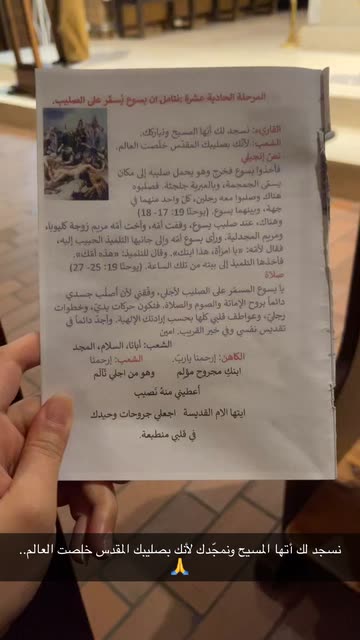 المرحلة الحادية عشرة :نتامل ان يسوع يُسمّر على الصليب.
القارىء: نسجد لك أيّها المسيح ونباركك.
الشعب: لأنّك بصليبك المقدّس خلّصت العالم.
نصّ إنجيلي
فأخذوا يسوع فخرج وهو يحمل صليبه إلى مكان
يسمّى الجمجمة، وبالعبرية جلجثة. فصلبوه
هناك وصلبوا معه رجلين، كلّ واحد منهما في
جهة، وبينهما يسوع. (يوحنّا 19: 17- 18)
وهناك، عند صليب يسوع، وقفت أمّه، وأخت أمّه مريم زوجة كليوبا،
ومريم المجدلية. ورأى يسوع أمّه وإلى جانبها التلميذ الحبيب إليه،
فقال لأمّه: «يا امرأة، هذا ابنك». وقال للتلميذ: «هذه أمّك».
فأخذها التلميذ إلى بيته من تلك الساعة. (يوحنّا 19: 25- 27)
صلاة
يا يسوع المسمّر على الصليب لأجلي، وفّقني لأن أصلب جسدي
دائماً بروح الإماتة والصوم والصلاة. فتكون حركات يديّ، وخطوات
رجليّ، وعواطف قلبي كلها بحسب إرادتك الإلهية. وأجدّ دائماً في
تقديس نفسي وفي خير القريب. امين
الشعب: أبانا، السلام، المجد
الكاهن: إرحمنا ياربّ. الشعب: إرحمنا
ابنكِ مجروح مؤلم وهو من اجلي تألم
أعطيني منهُ نَصيب
ايتها الام القديسة اجعلي جروحات وحيدك
في قلبي منطبعة.
نسجد لك أتها المسيح ونمجّدك لأنك بصليبك المقدس خلصت العالم..
🙏